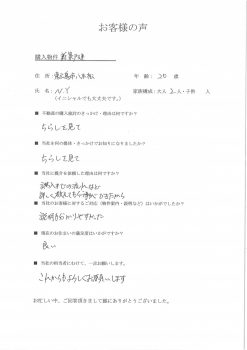 お客様の声
購入物件 新築戸建
住所 鹿児島市
年齢 20 歳
氏名 N.Y
家族構成：大人 2人・子供 人
(イニシャルでも大丈夫です。)
■ 不動産の購入動機のきっかけ・理由は何ですか？
ちらしを見て
■ 当社を何の媒体・きっかけでお知りになりましたか？
ちらしを見て
■ 当社に媒介を依頼した理由は何ですか？
購入までの流れなど
詳しく教えてもらう事ができたから
■ 当社のお客様に対するご対応（物件案内・説明など）はいかがでしたか？
説明も分かりやすかった
■ 現在のお住まいの満足度はいかがですか？
良い
■ 当社の担当者にむけて、一言お願いします。
これからもよろしくお願いします
お忙しい中、ご回答頂きまして誠にありがとうございました。